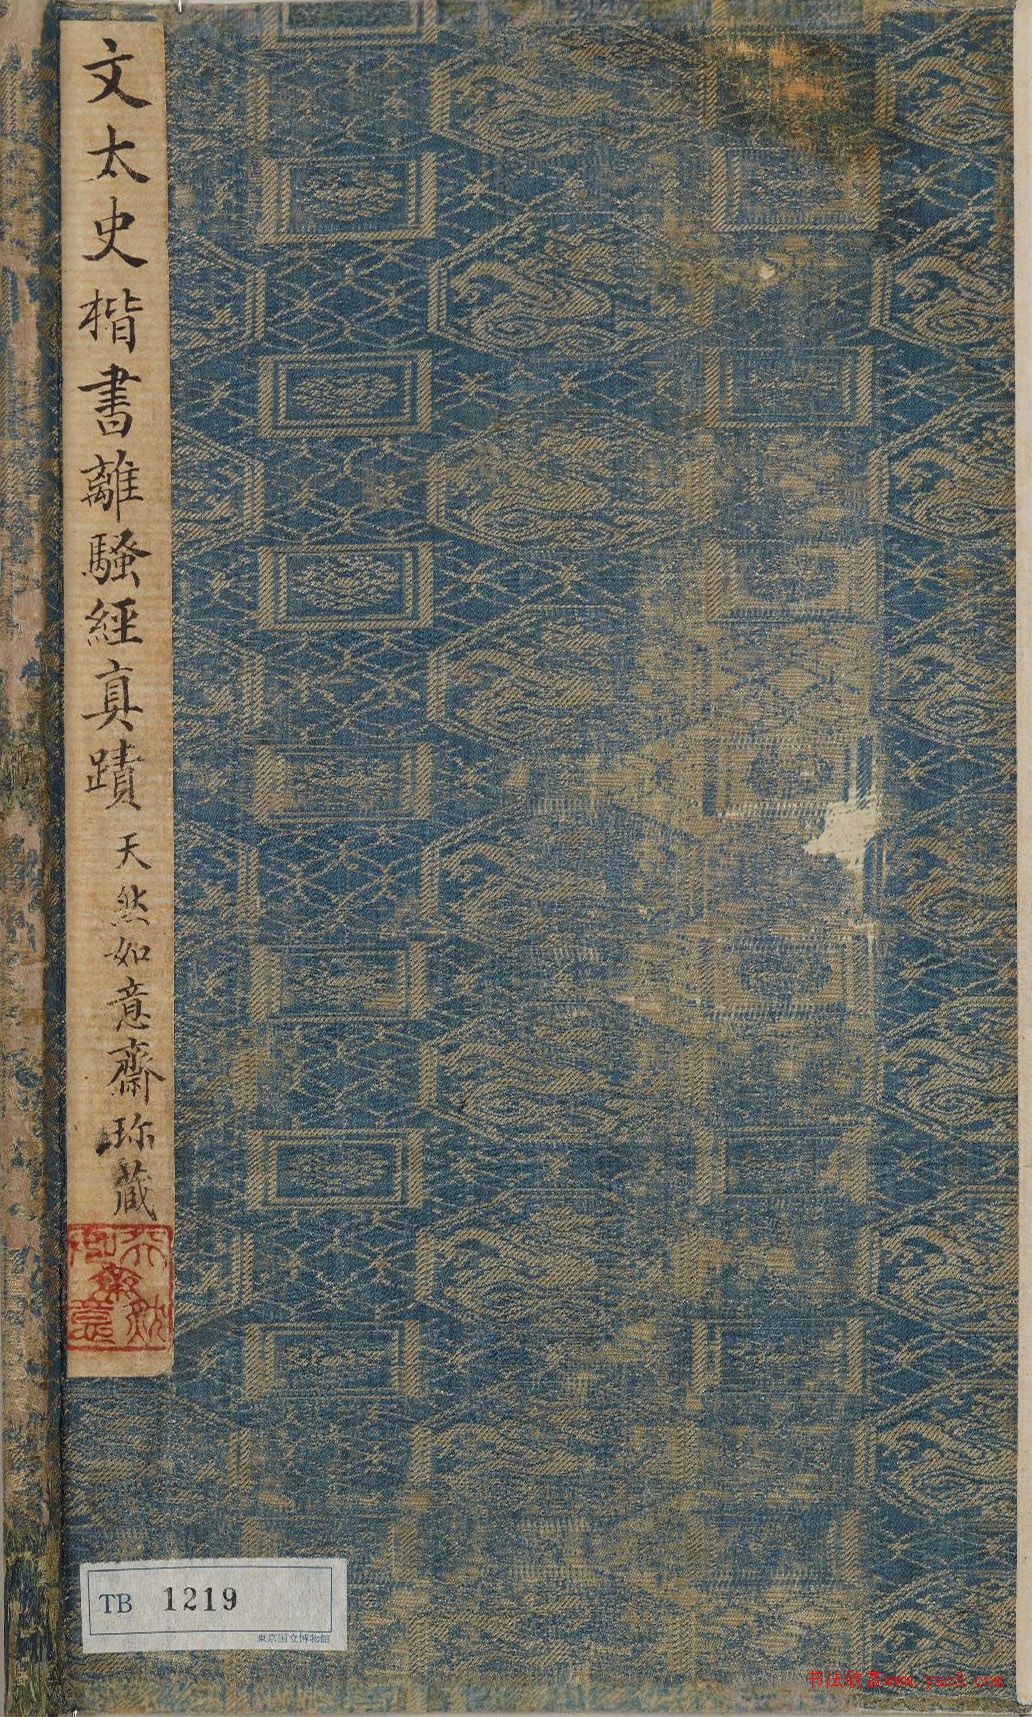 文太史楷書離騷經真蹟
天然如意齋珎藏
天然如意齋
TB 1219
東京国立博物館
书法欣赏www.yac8.com